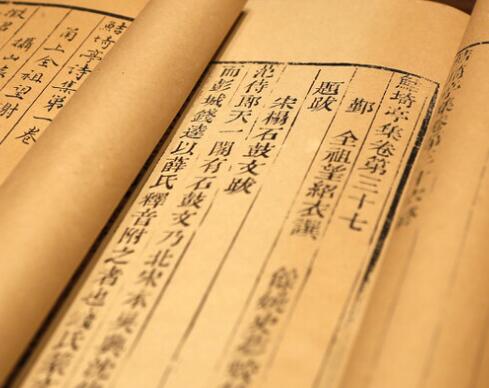 鮚埼亭集卷第三十七
鄞 全祖望紹衣譔
餘姚史夢蛟
題跋
宋搨石鼓文跋
范侍郎天一閣有石鼓文乃北宋本吳興沈
而彭城錢逵以薛氏釋音附之者也錢氏篆
鮚埼亭詩集第一卷
甬上全祖望謝
攝山